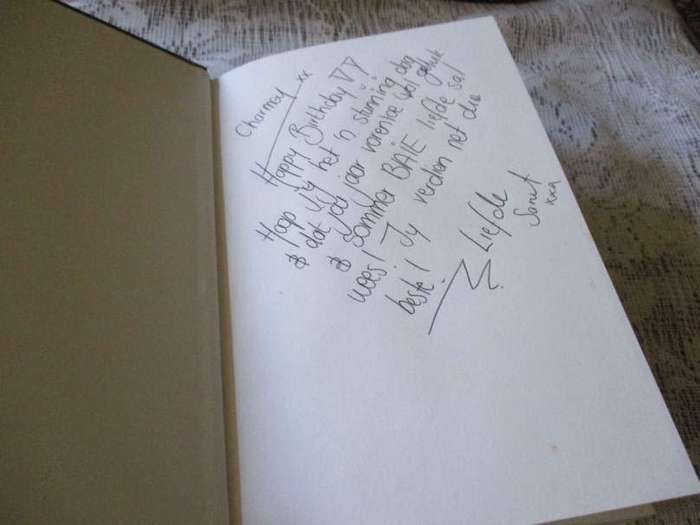 Charmoy xx
Happy Birthday !!
Hoop jy het 'n stunning dag
& dat jou jaar vorentoe vol geluk
& sommer BAIE liefde sal
wees! Jy verdien net die
beste!
Liefde
xxx